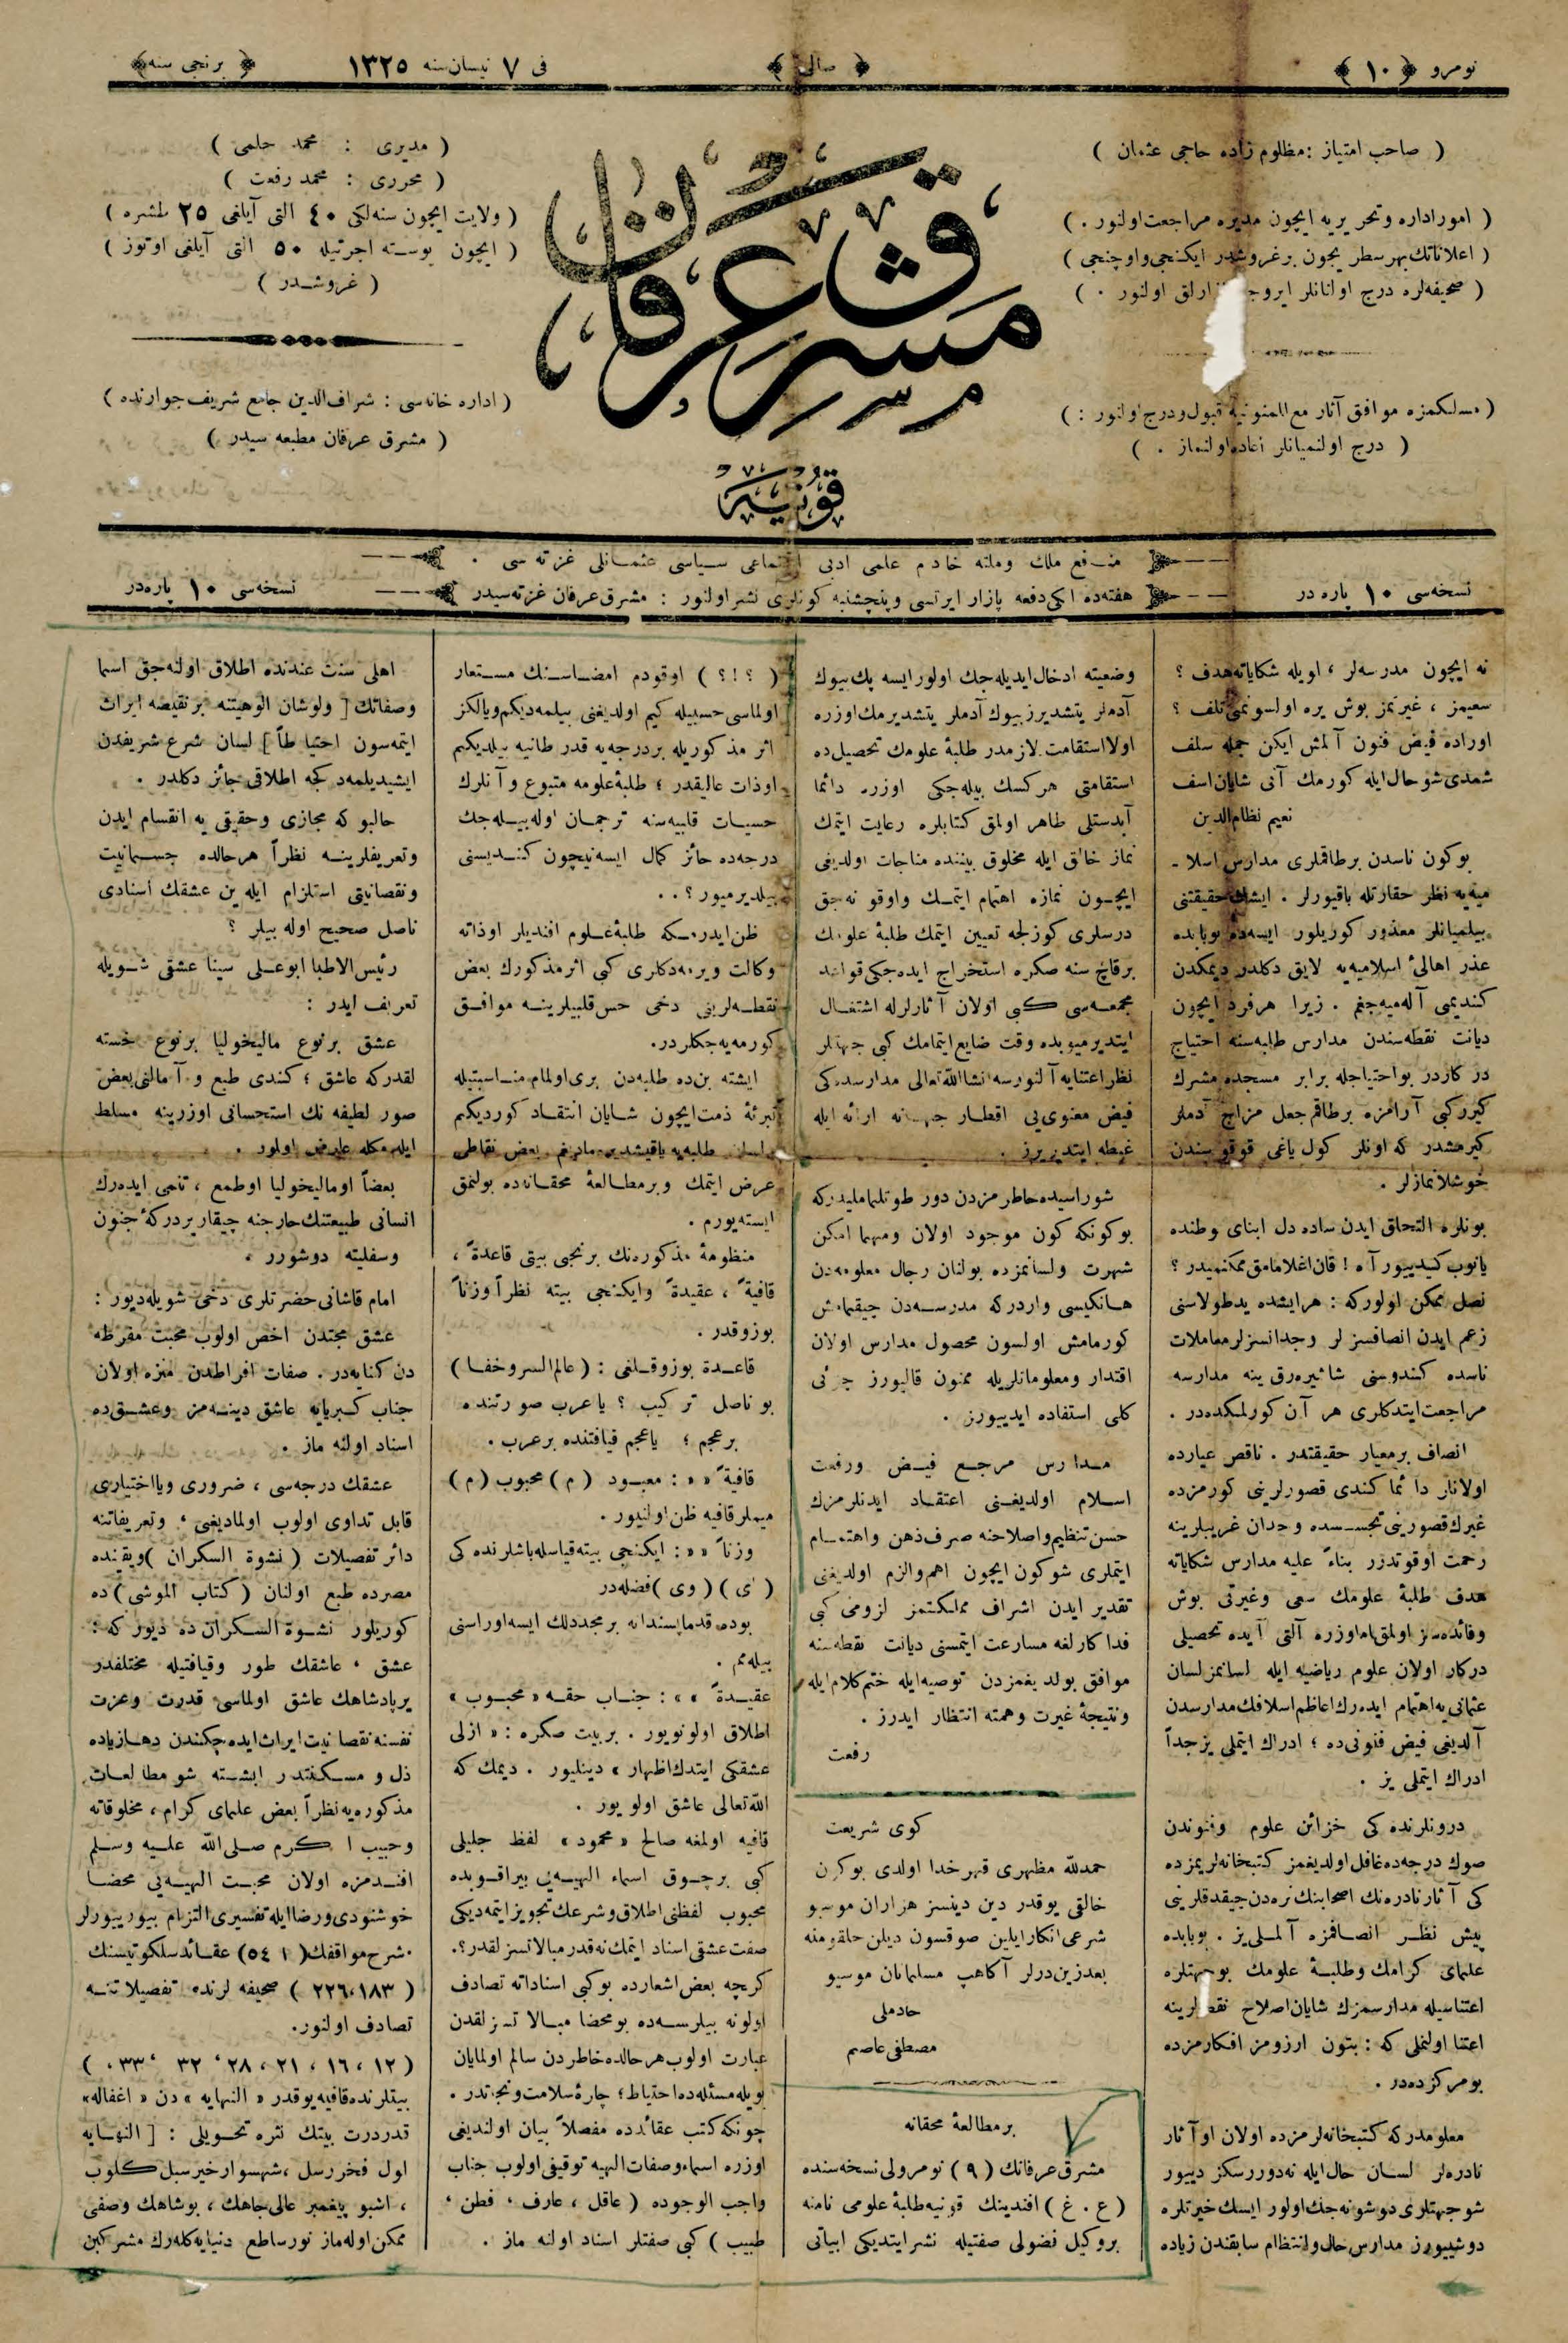 نومرو ﴿ ١٠ ﴾
﴿ صالی ﴾
فی ٧ نیسان سنه ١٣٢٥
﴿ برنجی سنه ﴾
( صاحب امتیاز : مظلوم زاده حاجی عثمان )
( امور اداره و تحریریه ایچون مدیره مراجعت اولنور . )
( اعلاناتك بهر سطر یچون بر غروشدر ایکنجی و اوچنجی )
( صحیفه‌لره درج اولنانلر ایروجه پازارلق اولنور . )
( مسلکمزه موافق آثار مع الممنونیه قبول و درج اولنور : )
( درج اولنمیانلر اعاده اولنماز . )
مشرق عرفان
قونیه
( مدیری : محمد حلمی )
( محرری : محمد رفعت )
( ولایت ایچون سنه‌لکی ٤٠ التی آیلغی ٢٥ طشره )
( ایچون پوسته اجرتیله ٥٠ التی آیلغی اوتوز )
( غروشدر )
( اداره خانه‌سی : شراف‌الدین جامع شریف جوارنده )
( مشرق عرفان مطبعه سیدر )
منافع ملك وملته خادم علمی ادبی اجتماعی سیاسی عثمانلی غزته سی .
نسخه‌سی ١٠ پاره در
هفته‌ده ایکی دفعه پازار ایرتسی و پنچشنبه کونلری نشر اولنور : مشرق عرفان غزته‌سیدر
نسخه‌سی ١٠ پاره‌در
نه ایچون مدرسه‌لر ، اویله شکایاته هدف ؟
سعیمز ، غیرتمز بوش یره اولسونمی تلف ؟
اوراده فیض فنون آلمش ایکن جمله سلف
شمدی شو حال ایله کورمك آنی شایان اسف
نعیم نظام‌الدین
بوکون ناسدن بر طاقملری مدارس اسلا ـ
میه‌یه نظر حقارتله باقیورلر . ایشك حقیقتنی
بیلمیانلر معذور کوریلور ایسه‌ده بوبابده
عذر اهالیٔ اسلامیه‌یه لایق دکلدر دیمکدن
کندیمی آله‌میه‌جغم . زیرا هر فرد ایچون
دیانت نقطه‌سندن مدارس طلبه‌سنه احتیاج
در کاردر بو احتیاجله برابر مسجده مشرك
کیررکبی آرامزه بر طاقم جعل مزاج آدملر
کیرمشدر که اونلر کول یاغی قوقوسندن
خوشلانمازلر .
بونلره التحاق ایدن ساده دل ابنای وطنده
یانوب کیدییور آه ! قان اغلامامق ممکنمیدر ؟
نصل ممکن اولورکه : هر ایشده ید طولاسنی
زعم ایدن انصافسز لر وجدانسزلر معاملات
ناسده کندوسنی شاشیره‌رق ینه مدارسه
مراجعت ایتدکلری هر آن کورلمکده‌در .
انصاف بر معیار حقیقتدر . ناقص عیارده
اولانلر دائما کندی قصورلرینی کورمزده
غیرك قصورینی تجسسده وجدان غریبلرینه
رحمت اوقوتدرر بناءً علیه مدارس شکایاته
هدف طلبهٔ علومك سعی وغیرتی بوش
وفائده‌سز اولمق‌امه اوزره آلتی آیده تحصیلی
درکار اولان علوم ریاضیه ایله لسانمز لسان
عثمانی‌یه اهتمام ایده‌رك اعاظم اسلافك مدارسدن
آلدیغی فیض فنونی‌ده ؛ ادراك ایتملی یز جداً
ادراك ایتملی یز .
درونلرنده کی خزائن علوم وفنوندن
صوك درجه‌ده غافل اولدیغمز کتبخانه‌لریمزده
کی آثار نادره‌نك اصحابنك نره‌دن چیقدقلرینی
پیش نظر انصافمزه آلملی‌یز . بوبابده
علمای کرامك وطلبهٔ علومك بوجهتلره
اعتناسیله مدارسمزك شایان اصلاح نقطه‌لرینه
اعتنا اولنملی که : بتون ارزومز افکارمزده
بومرکزده‌در .
معلومدرکه کتبخانه‌لرمزده اولان اوآثار
نادره‌لر لسان حال ایله نه‌دوررسکز دییور
شوجهتلری دوشونه‌جك اولور ایسك خیرتلره
دوشییورز مدارس حال وانتظام سابقندن زیاده
وضعیته ادخال ایدیله‌جك اولور ایسه پك بیوك
آدملر یتشدیرز بیوك آدملر یتشدیرمك اوزره
اولا استقامت لازمدر طلبهٔ علومك تحصیل‌ده
استقامتی هرکسك بیله‌جکی اوزره دائما
آبدستلی طاهر اولمق کتابلره رعایت ایتمك
نماز خالق ایله مخلوق بیننده مناجات اولدیغی
ایچون نمازه اهتمام ایتمك واوقونه‌جق
درسلری کوزلجه تعیین ایتمك طلبهٔ علومك
برقاچ سنه صکره استخراج ایده‌جکی قواعد
مجمعه‌سی کبی اولان آثارلرله اشتغال
ایتدیرمیوبده وقت ضایع ایتمامك کبی جهتلر
نظر اعتنایه آلنورسه انشاالله تعالی مدارسده‌کی
فیض معنوی‌یی اقطار جهانه ارائه ایله
غبطه ایتدیریرز .
شوراسیده خاطرمزدن دور طوتلمامالیدرکه
بوکونکه کون موجود اولان ومهما امکن
شهرت ولسانمزده بولنان رجال معلومه‌دن
هانکیسی واردرکه مدرسه‌دن چیقمامش
کورمامش اولسون محصول مدارس اولان
اقتدار ومعلوماتلریله ممنون قالیورز جزئی
کلی استفاده ایدییورز .
مدارس مرجع فیض ورفعت
اسلام اولدیغنی اعتقاد ایدنلرمزك
حسن تنظیم واصلاحنه صرف ذهن واهتمام
ایتملری شوکون ایچون اهم والزم اولدیغنی
تقدیر ایدن اشراف مملکتمز لزومی کبی
فداکارلغه مسارعت ایتمسنی دیانت نقطه‌سنه
موافق بولدیغمزدن توصیه ایله ختم کلام ایله
ونتیجهٔ غیرت وهمته انتظار ایدرز .
رفعت
کوی شریعت
حمدلله مظهری قهر خدا اولدی بوکون
خالقی یوقدر دین دینسز هزاران موسیو
شرعی انکار ایلین صوقسون دیلن حلقومنه
بعدزین درلر آکاهپ مسلمانان موسیو
حادملی
مصطفی عاصم
بر مطالعهٔ محقانه
مشرق عرفانك ( ٩ ) نومرولی نسخه‌سنده
( ع . غ ) افندینك قونیه طلبهٔ علومی نامنه
بروکیل فضولی صفتیله نشر ایتدیکی ابیاتی
( ؟ ! ؟ ) اوقودم امضاسنك مستعار
اولماسی حسبیله کیم اولدیغنی بیلمه‌دیکم ویالکز
اثر مذکوریله بر درجه‌یه قدر طانیه بیلدیکم
اوذات عالیقدر ؛ طلبهٔ علومه متبوع وآنلرك
حسیات قلبیه‌سنه ترجمان اوله‌بیله‌جك
درجه‌ده حائز کمال ایسه نیچون کندیسنی
بیلدیرمیور ؟ . .
ظن ایدرمکه طلبهٔ علوم افندیلر اوذاته
وکالت ویرمه‌دکلری کبی اثر مذکورك بعض
نقطه‌لرینی دخی حس قلبیلرینه موافق
کورمه‌یه‌جکلردر.
ایشته بن‌ده طلبه‌دن بری اولمام مناسبتیله
تبرئهٔ ذمت ایچون شایان انتقاد کوردیکم
طلبه‌یه یاقیشدیره‌مادیغم بعض نقاطی
عرض ایتمك وبر مطالعهٔ محقانه‌ده بولنمق
ایسته‌یورم .
منظومهٔ مذکوره‌نك برنجی بیتی قاعدةً ،
قافیةً ، عقیدةً وایکنجی بیته نظراً وزناً
بوزوقدر .
قاعدة بوزوقلغی : ( عالم السروخفا )
بو ناصل ترکیب ؟ یا عرب صورتنده
برعجم ؛ یاعجم قیافتنده بر عرب .
قافیةً « « : معبود ( م ) محبوب ( م )
میملر قافیه ظن اولنیور .
وزناً « « : ایکنجی بیته قیاسله باشلرنده کی
( ای ) ( وی ) فضله‌در
بوده قدما پسندانه بر مجددلك ایسه اوراسنی
بیله‌مم .
عقیدةً » » : جناب حقه « محبوب »
اطلاق اولونویور . بر بیت صکره : « ازلی
عشقکی ایتدك اظهار » دینلیور . دیمك که
الله تعالی عاشق اولویور .
قافیه اولمغه صالح « محمود » لفظ جلیلی
کبی برچوق اسماء الهیه‌یی بیراقوبده
محبوب لفظنی اطلاق وشرعك تجویز ایتمه‌دیکی
صفت عشقی اسناد ایتمك نه‌قدر مبالاتسزلقدر ؟.
کرچه بعض اشعارده بوکبی اسناداته تصادف
اولونه بیلرسه‌ده بو محضا مبالاتسزلقدن
عبارت اولوب هر حالده خاطردن سالم اولمایان
بویله مسئله‌ده احتیاط ؛ چارهٔ سلامت ونجاتدر .
چونکه کتب عقائدده مفصلاً بیان اولندیغی
اوزره اسماء وصفات الهیه توقیفی اولوب جناب
واجب الوجوده ( عاقل ، عارف ، فطن ،
طبیب ) کبی صفتلر اسناد اولنه ماز .
اهلی سنت عندنده اطلاق اولنه‌جق اسما
وصفاتك [ ولوشان الوهیتنه بر نقیضه ایراث
ایتمه‌سون احتیاطاً ] لسان شرع شریفدن
ایشیدیلمه‌دکجه اطلاقی جائز دکلدر .
حالبوکه مجازی وحقیقی یه انقسام ایدن
وتعریفلرینه نظراً هر حالده جسمانیت
ونقصانیتی استلزام ایله‌ین عشقك اسنادی
ناصل صحیح اوله بیلر ؟
رئیس الاطبا ابوعلی سینا عشقی شویله
تعریف ایدر :
عشق برنوع مالیخولیا برنوع خسته
لقدرکه عاشق ؛ کندی طبع و آمالنی بعض
صور لطیفه نك استحسانی اوزرینه مسلط
ایله‌مکله عارض اولور .
بعضاً اومالیخولیا اوطمع ، تنمی ایده‌رك
انسانی طبیعتنك خارجنه چیقاریر درکهٔ جنون
وسفلیته دوشورر .
امام قاشانی حضرتلری دخی شویله دیور :
عشق محبتدن اخص اولوب محبت مفرطه
دن کنایه‌در . صفات افراطدن منزه اولان
جناب کبریایه عاشق دینه‌مز وعشق‌ده
اسناد اولنه ماز .
عشقك درجه‌سی ، ضروری ویااختیاری
قابل تداوی اولوب اولمادیغی ، وتعریفاتنه
دائر تفصیلات ( نشوة السکران ) ویقنده
مصرده طبع اولنان ( کتاب الموشی ) ده
کوریلور نشوة السکران ده دیور که :
عشق ، عاشقك طور وقیافتیله مختلفدر
بر پادشاهك عاشق اولماسی قدرت وعزت
نفسنه نقصانیت ایراث ایده‌جکندن دهازیاده
ذل و مسکنتدر ایشته شو مطالعات
مذکوره‌یه نظراً بعض علمای کرام ، مخلوقاته
وحبیب اکرم صلی الله علیه وسلم
افندمزه اولان محبت الهیه‌یی محضا
خوشنودی ورضا ایله تفسیری التزام بیورییورلر
شرح مواقفك ( ٥٤١ ) عقائد سلکوتیسنك
( ٢٢٦،١٨٣ ) صحیفه لرنده تفصیلاتنه
تصادف اولنور.
( ١٢ ، ١٦ ، ٢١ ، ٢٨ ، ٣٢ ، ٣٣ ، )
بیتلرنده قافیه یوقدر « النهایه » دن « اغفاله »
قدردرت بیتك نثره تحویلی : [ النهایه
اول فخررسل ، شهسوار خیرسبل کلوب
، اشبو پیغمبر عالی جاهك ، بوشاهك وصفی
ممکن اوله‌ماز نور ساطع دنیایه کله‌رك مشرکین